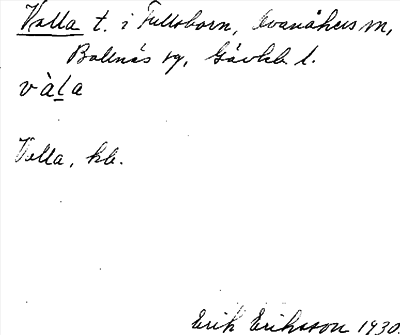 Valla t. i Fullsborn, Svanåhus m,
Bollnäs sg, Gävleb l.
vàla
Valla, hb.
Erik Eriksson 1930.